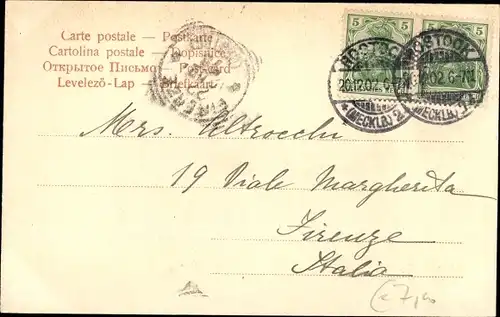 Carte postale — Postkarte
Cartolina postale — Dopisnice
Открытое Письмо — Post-card
Levelező-Lap — Briefkaart
5 5
ROSTOCK
20.12.02. 6-7N
* (MECKLB.) 2
ROSTOCK
02 6-7N
(MECKLB.) 2
Mrs. Altrocchi
19 Viale Margherita
Firenze
Italia